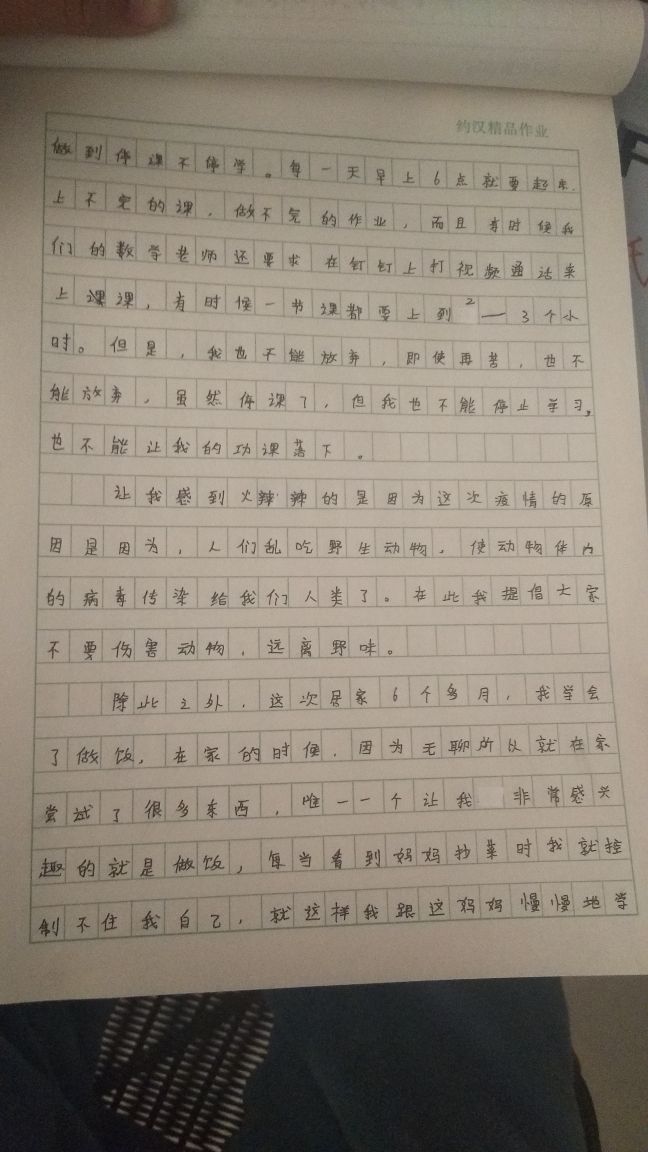 约汉精品作业
做到停课不停学。每一天早上6点就要起来.
上不完的课，做不完的作业，而且有时候我
们的数学老师还要求在钉钉上打视频通话来
上课课，有时候一节课都要上到2—3个小
时。但是，我也不能放弃，即使再苦，也不
能放弃，虽然停课了，但我也不能停止学习，
也不能让我的功课落下。
让我感到火辣辣的是因为这次疫情的原
因是因为，人们乱吃野生动物，使动物体内
的病毒传染给我们人类了。在此我提倡大家
不要伤害动物，远离野味。
除此之外，这次居家6个多月，我学会
了做饭，在家的时候，因为无聊所以就在家
尝试了很多东西，唯一一个让我非常感兴
趣的就是做饭，每当看到妈妈抄菜时我就控
制不住我自己，就这样我跟这妈妈慢慢地学